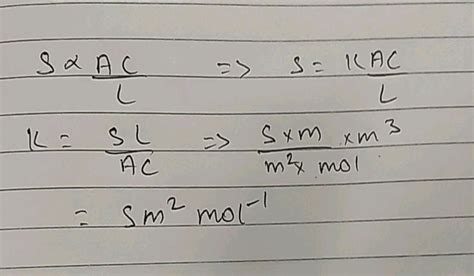 S ∝ AC/L => S = K AC/L
K = SL/AC => S×m/m²× mol ×m³
= Sm² mol⁻¹